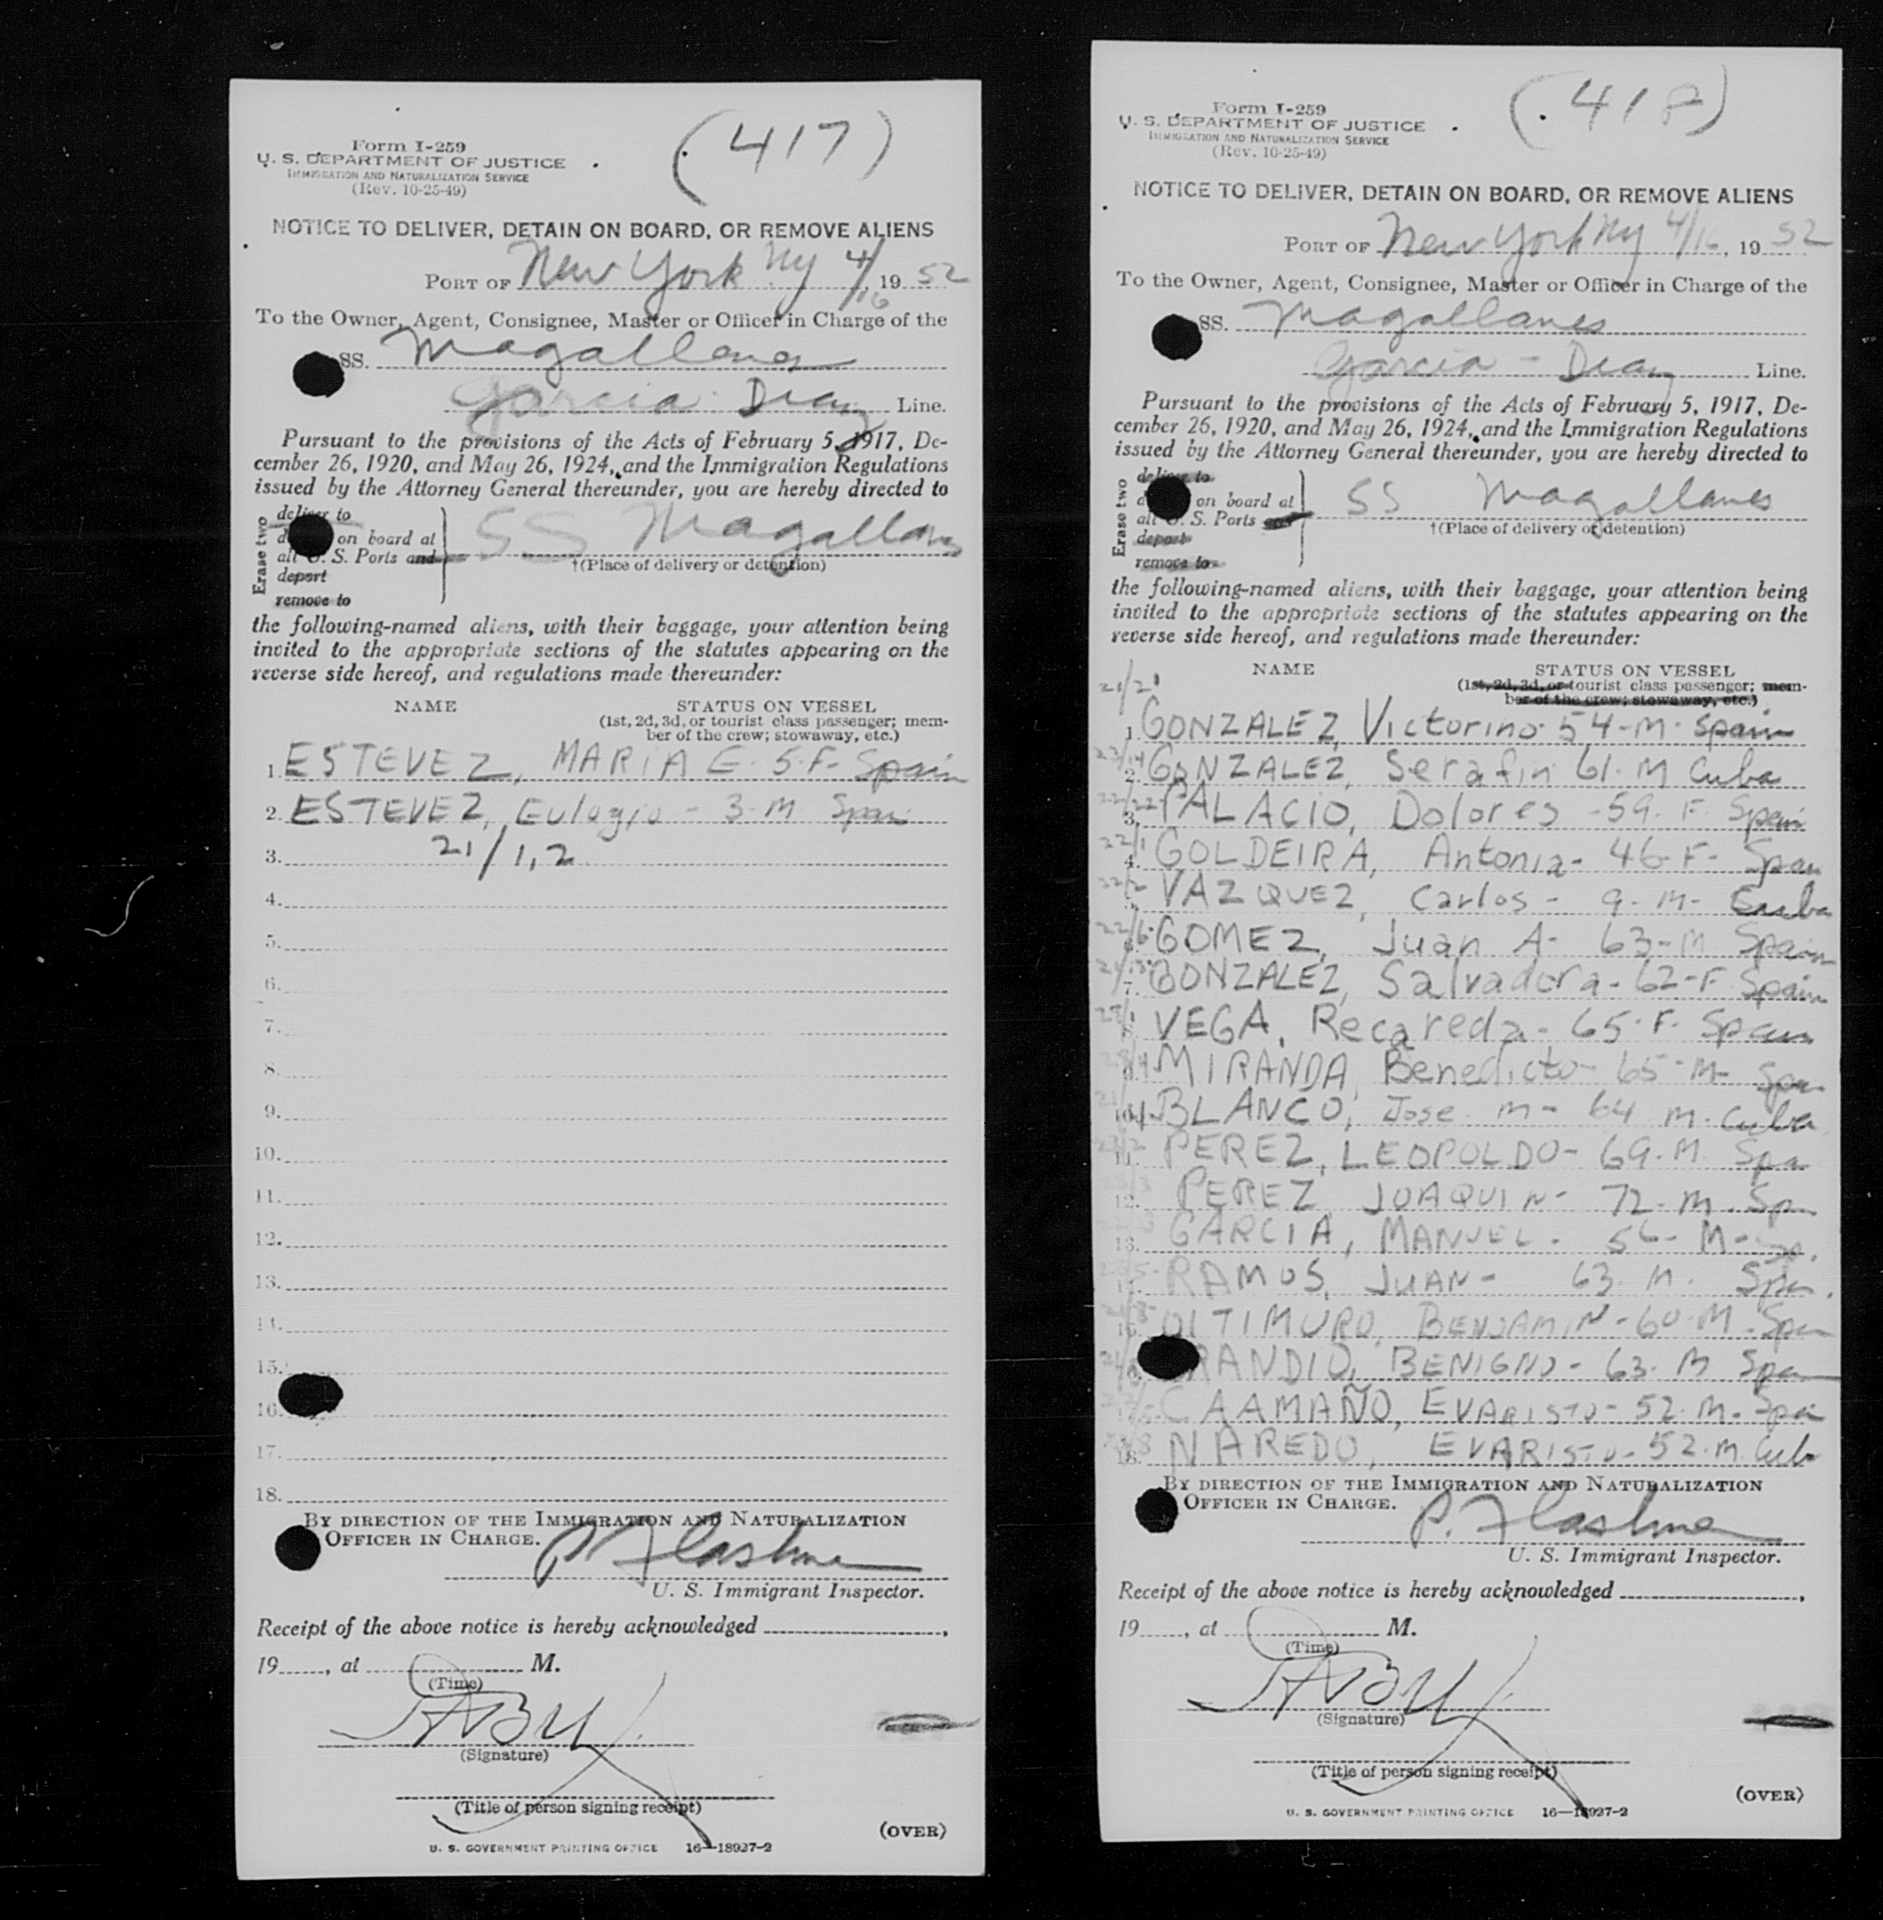 (417)
Form I-259
U. S. DEPARTMENT OF JUSTICE
IMMIGRATION AND NATURALIZATION SERVICE
(Rev. 10-25-49)
NOTICE TO DELIVER, DETAIN ON BOARD, OR REMOVE ALIENS
PORT OF New York Ny 4/16, 19 52
To the Owner, Agent, Consignee, Master or Officer in Charge of the
SS. Magallanes
Garcia Diaz Line.
Pursuant to the provisions of the Acts of February 5, 1917, De-
cember 26, 1920, and May 26, 1924, and the Immigration Regulations
issued by the Attorney General thereunder, you are hereby directed to
Erase two
deliver to
on board at
all U. S. Ports and
deport
remove to
SS Magallanes
†(Place of delivery or detention)
the following-named aliens, with their baggage, your attention being
invited to the appropriate sections of the statutes appearing on the
reverse side hereof, and regulations made thereunder:
NAME STATUS ON VESSEL
(1st, 2d, 3d, or tourist class passenger; mem-
ber of the crew; stowaway, etc.)
1. ESTEVEZ, MARIA E. 5-F- Spain
2. ESTEVEZ, Eulogio - 3-M Spain
3. 21/1,2
4.
5.
6.
7.
8.
9.
10.
11.
12.
13.
14.
15.
16.
17.
18.
BY DIRECTION OF THE IMMIGRATION AND NATURALIZATION
OFFICER IN CHARGE.
U. S. Immigrant Inspector.
Receipt of the above notice is hereby acknowledged
19, at M.
(Time)
(Signature)
(Title of person signing receipt)
(OVER)
U. S. GOVERNMENT PRINTING OFFICE 16—18927-2
(418)
Form I-259
U. S. DEPARTMENT OF JUSTICE
IMMIGRATION AND NATURALIZATION SERVICE
(Rev. 10-25-49)
NOTICE TO DELIVER, DETAIN ON BOARD, OR REMOVE ALIENS
PORT OF New York Ny 4/16, 19 52
To the Owner, Agent, Consignee, Master or Officer in Charge of the
SS. Magallanes
Garcia - Diaz Line.
Pursuant to the provisions of the Acts of February 5, 1917, De-
cember 26, 1920, and May 26, 1924, and the Immigration Regulations
issued by the Attorney General thereunder, you are hereby directed to
Erase two
deliver to
on board at
all U. S. Ports and
deport
remove to
SS Magallanes
†(Place of delivery or detention)
the following-named aliens, with their baggage, your attention being
invited to the appropriate sections of the statutes appearing on the
reverse side hereof, and regulations made thereunder:
NAME STATUS ON VESSEL
(1st, 2d, 3d, or tourist class passenger; mem-
ber of the crew; stowaway, etc.)
21/21
1. GONZALEZ, Victorino - 54-M- Spain
2. GONZALEZ, Serafin 61-M Cuba
3. PALACIO, Dolores - 59- F- Spain
4. GOLDEIRA, Antonia - 46-F- Spain
VAZQUEZ, Carlos - 9-M- Cuba
GOMEZ, Juan A- 63-M Spain
7. GONZALEZ, Salvadora - 62-F Spain
VEGA, Recareda - 65-F- Spain
MIRANDA, Benedicto - 65-M- Spa
10. BLANCO, Jose M- 64 M- Cuba
11. PEREZ, LEOPOLDO - 69-M Spa
12. PEREZ, JOAQUIN - 72-M- Spa
13. GARCIA, MANUEL - 56- M- Sp.
RAMOS, JUAN - 63-M. Spa.
BENJAMIN - 60-M- Spa
BENIGNO - 63-M Spa
CAAMAÑO, EVARISTO - 52-M- Spa
18. NAREDO, EVARISTO - 52-M Cuba
BY DIRECTION OF THE IMMIGRATION AND NATURALIZATION
OFFICER IN CHARGE.
U. S. Immigrant Inspector.
Receipt of the above notice is hereby acknowledged
19, at M.
(Time)
(Signature)
(Title of person signing receipt)
(OVER)
U. S. GOVERNMENT PRINTING OFFICE 16—18927-2